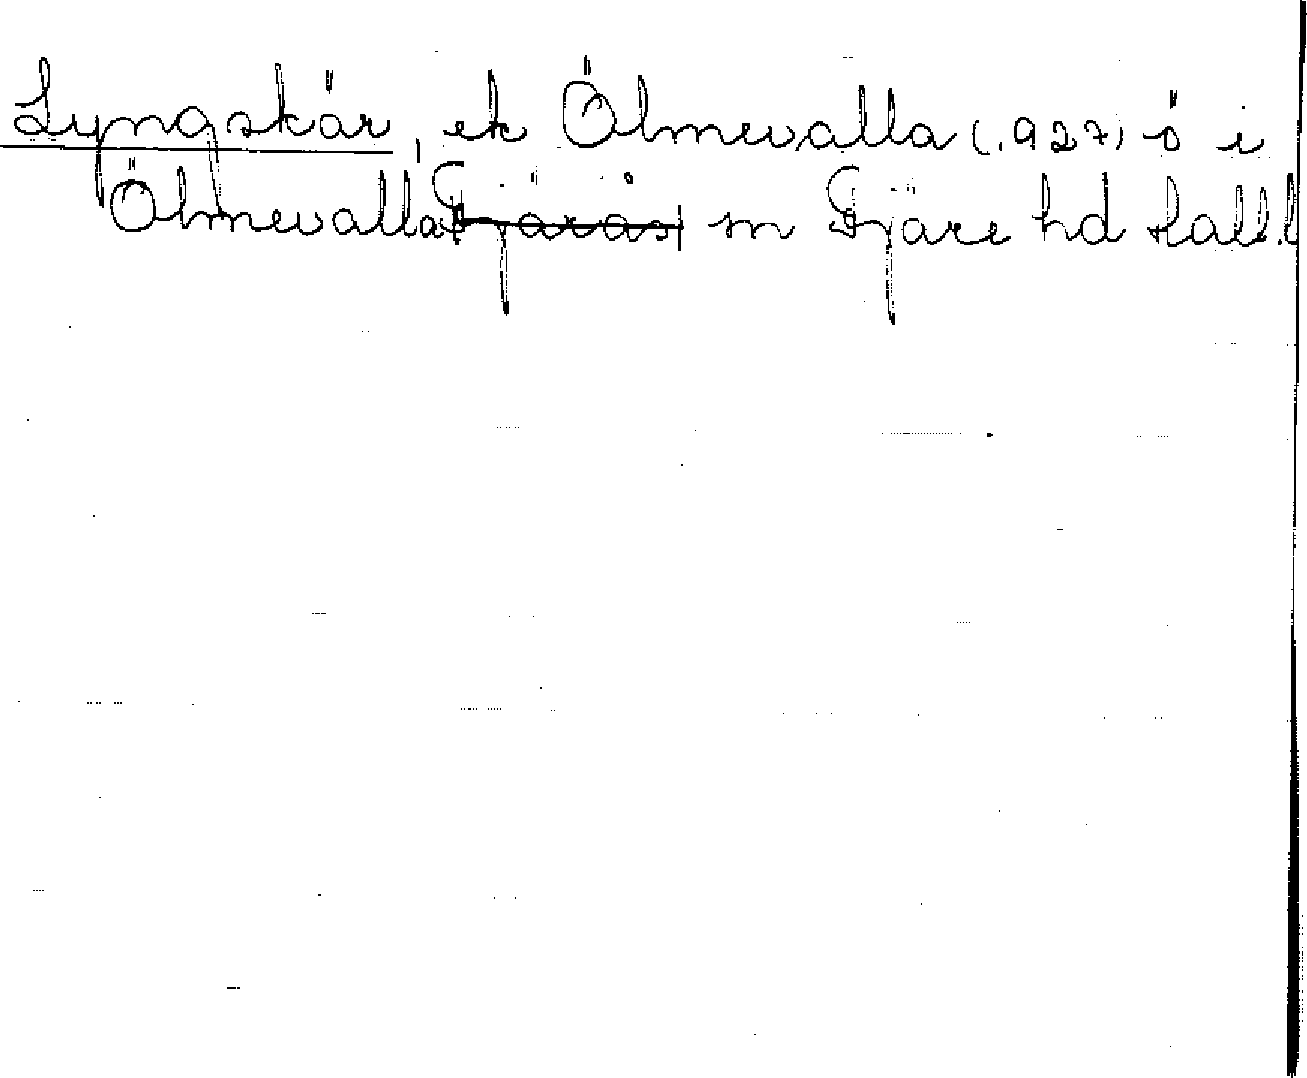 Lyngskär, ek Ölmevalla (.927) ö i
Ölmevalla Fjärås sn Fjäre hd Hall.l